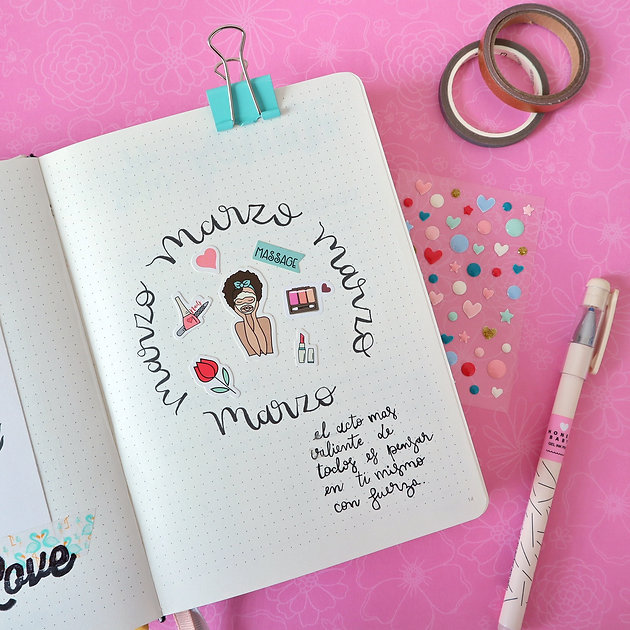 marzo
marzo
marzo
marzo
MASSAGE
el acto mas
valiente de
todos es pensar
en ti mismo
con fuerza.
Love
GEL INK